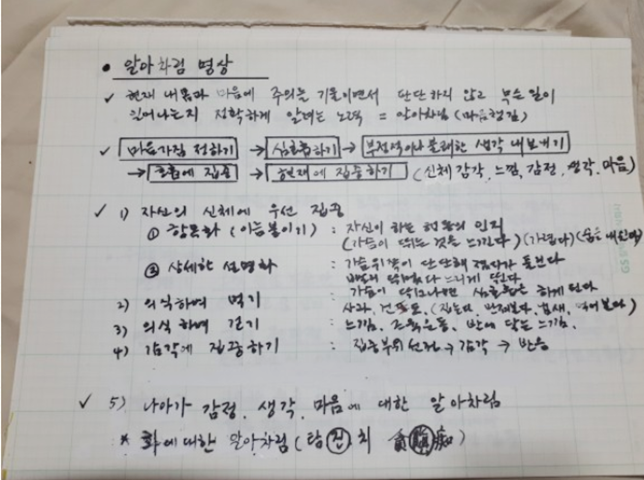 • 알아차림 명상
✓ 현재 내 몸과 마음에 주의를 기울이면서 판단하지 않고 무슨 일이
일어나는지 정확하게 알려는 노력 = 알아차림 (마음챙김)
✓ 마음가짐 정하기 → 심호흡하기 → 부정적이나 불쾌한 생각 내보내기
→ 호흡에 집중 → 현재에 집중하기 (신체감각, 느낌, 감정, 생각, 마음)
✓ 1) 자신의 신체에 우선 집중
① 항목화 (이름붙이기) : 자신이 하는 행동의 인지
(가슴이 뛰는 것을 느낀다) (가렵다) (숨을 내쉰다)
② 상세한 설명화 : 가슴 위쪽이 단단해
느리게 뛴다
가슴이 심호흡을 하게 된다
2) 의식하며 먹기 : 사과, 건포도, 냄새, 먹어보다)
3) 의식하며 걷기 : 느낌, 발에 닿는 느낌,
4) 감각에 집중하기 : 집중부위 선정 → 감각 → 반응
✓ 5) 나아가 감정, 생각, 마음에 대한 알아차림
* 화에 대한 알아차림 (탐 진 치 貪 瞋 痴)